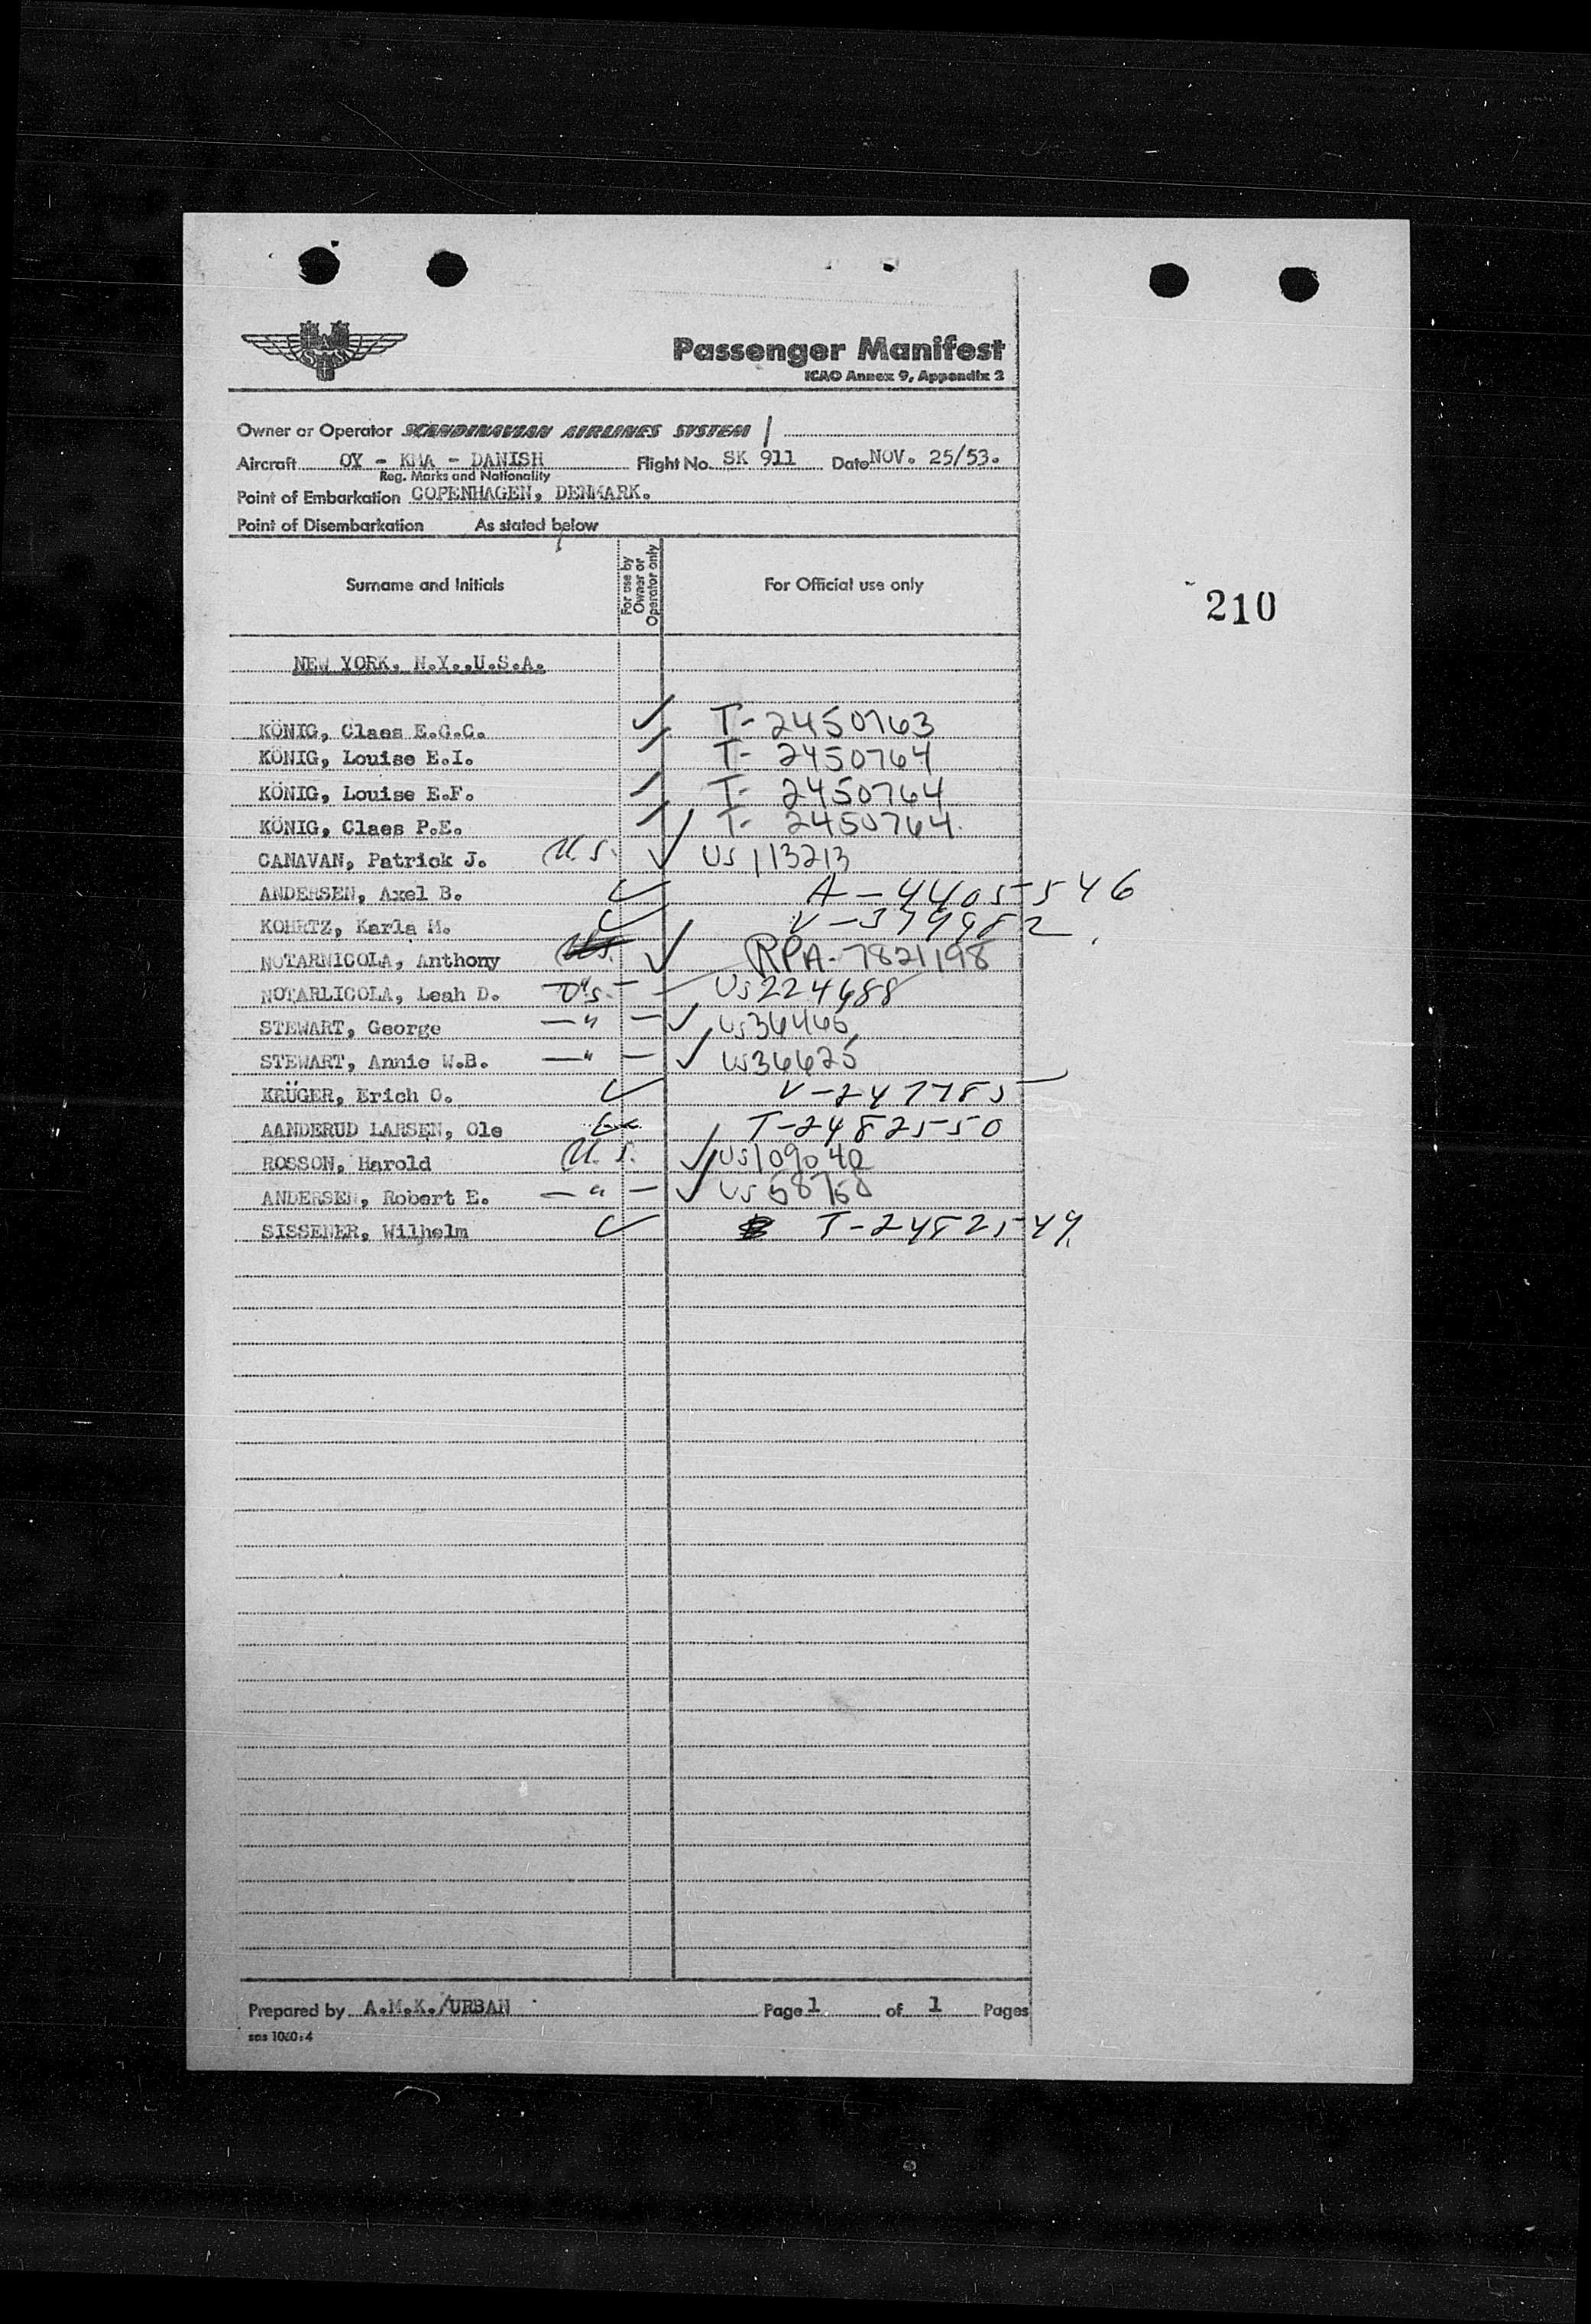 Passenger Manifest
ICAO Annex 9, Appendix 2
Owner or Operator SCANDINAVIAN AIRLINES SYSTEM
Aircraft OY - KMA - DANISH Flight No. SK 911 Date NOV. 25/53.
Reg. Marks and Nationality
Point of Embarkation COPENHAGEN, DENMARK.
Point of Disembarkation As stated below
Surname and Initials For use by Owner or Operator only For Official use only
210
NEW YORK, N.Y.,U.S.A.
KÖNIG, Claes E.G.C. ✓ T- 2450763
KÖNIG, Louise E.I. ✓ T- 2450764
KÖNIG, Louise E.F. ✓ T- 2450764
KÖNIG, Claes P.E. ✓ T- 2450764.
CANAVAN, Patrick J. U.S. ✓ US 113213
ANDERSEN, Axel B. ✓ A-4405546
KOHRTZ, Karla M. ✓ V-379982
NOTARNICOLA, Anthony ✓ RPA-7821198
NOTARLICOLA, Leah D. U.S. US224688
STEWART, George — " — ✓ US36446
STEWART, Annie W.B. — " — ✓ US36625
KRÜGER, Erich O. ✓ V-247785
AANDERUD LARSEN, Ole T-2482550
ROSSON, Harold U.S. ✓ US109040
ANDERSEN, Robert E. — " — ✓ US68768
SISSENER, Wilhelm ✓ T-2482549
Prepared by A.M.K./URBAN Page 1 of 1 Pages
sas 1060:4